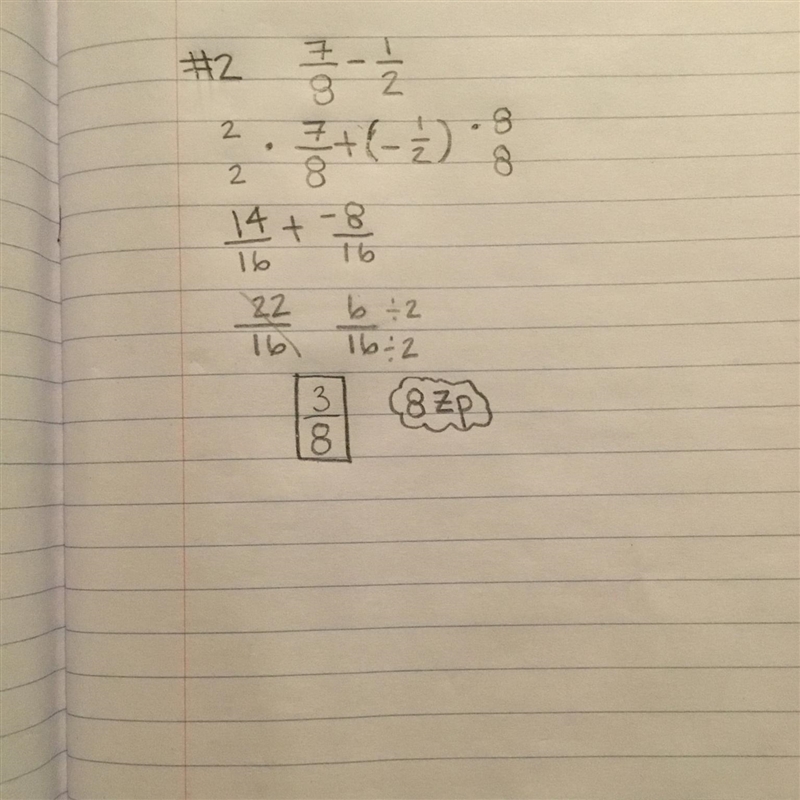 #2 7/8 - 1/2
2/2 · 7/8 + (- 1/2) · 8/8
14/16 + -8/16
22/16 6/16 ÷2/÷2
3/8 8 zp